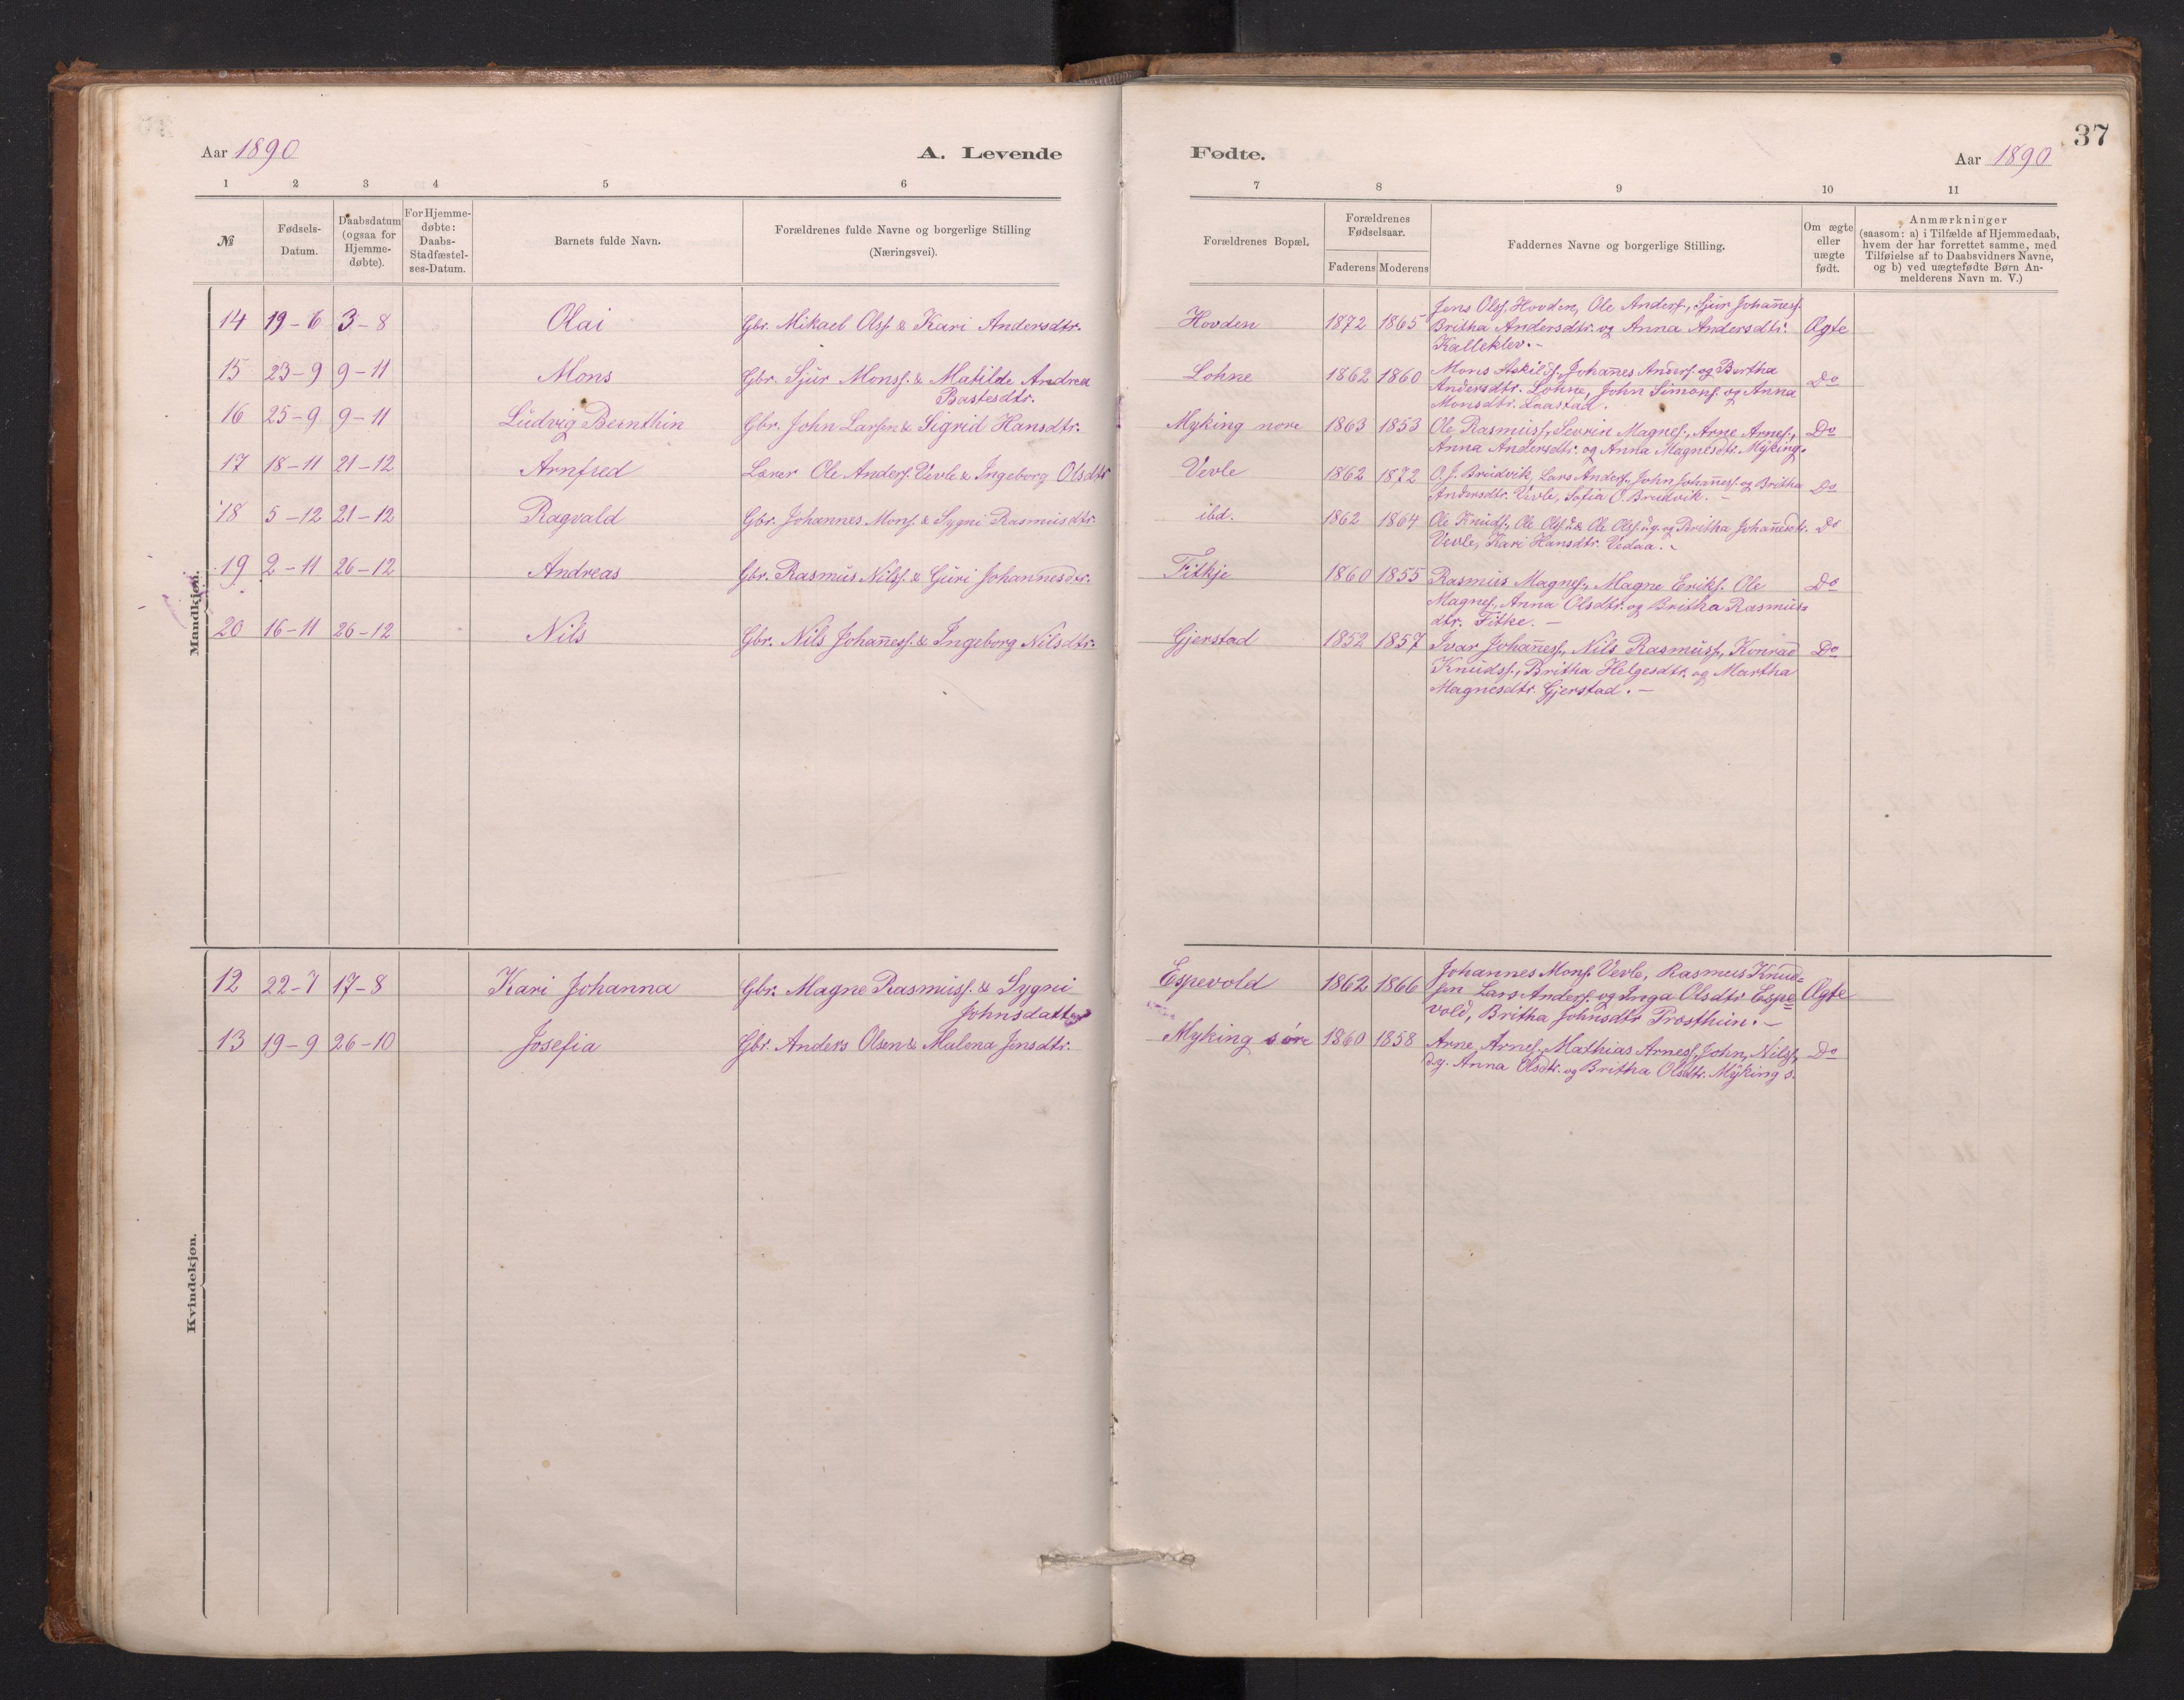 37
Aar 1890 A. Levende Fødte. Aar 1890
1 2 3 4 5 6 7 8 9 10 11
№ Fødsels-Datum. Daabsdatum (ogsaa for Hjemme-døbte). For Hjemme-døbte: Daabs-Stadfæstel-ses-Datum. Barnets fulde Navn. Forældrenes fulde Navne og borgerlige Stilling (Næringsvei). Forældrenes Bopæl. Forældrenes Fødselsaar. Faderens Moderens Faddernes Navne og borgerlige Stilling. Om ægte eller uægte født. Anmærkninger (saasom: a) i Tilfælde af Hjemmedaab, hvem der har forrettet samme, med Tilføielse af to Daabsvidners Navne, og b) ved uægtefødte Børn An-melderens Navn m. V.)
Mandkjøn.
14 19-6 3-8 Olai Gbr. Mikael Olss. & Kari Andersdtr. Hovden 1872 1865 Jens Olss. Hovden, Ole Anderss., Sjur Johaness.
Britha Andersdtr. og Anna Andersdtr. Ægte
Kalleklev.-
15 23-9 9-11 Mons Gbr. Sjur Monss. & Matilde Andrea Lohne 1862 1860 Mons Askilds., Johanes Anders. og Bertha Do
Bastesdtr. Andersdtr. Lohne, John Simons. og Anna
Monsdtr. Laastad.
16 25-9 9-11 Ludvig Bernthin Gbr. John Larssen & Sigrid Hansdtr. Myking nore 1863 1853 Ole Rasmuss., Sevrin Magnes., Arne Arnes., Do
Anna Andersdtr. og Anna Magnesdtr. Myking.
17 18-11 21-12 Arnfred Lærer Ole Anders. Vevle & Ingeborg Olsdtr Vevle 1862 1872 O. J. Brudvik, Lars Anders., John Johanes. og Britha Do
Andersdtr. Vevle, Sofia O. Brudvik. -
18 5-12 21-12 Ragvald Gbr. Johannes Mons. & Sygni Rasmusdtr. ibd. 1862 1864 Ole Knuds., Ole Olss. & Ole Olss. ug. og Britha Johanesdtr. Do
Vevle, Kari Hansdtr. Vedaa.
19 2-11 26-12 Andreas Gbr. Rasmus Nilss. & Guri Johannesdtr. Fitkje 1860 1855 Rasmus Magnes., Magne Eriks. Ole Do
Magnes., Anna Olsdtr. og Britha Rasmus=
dtr. Fitke. -
20 16-11 26-12 Nils Gbr. Nils Johaness. & Ingeborg Nilsdtr. Gjerstad 1852 1857 Ivar Johaness., Nils Rasmuss., Konrad Do
Knudss., Britha Helgesdtr. og Martha
Magnesdtr. Gjerstad. -
Kvindekjøn.
12 22-7 17-8 Kari Johanna Gbr. Magne Rasmuss. & Sygni Espevold 1862 1866 Johannes Mons. Vevle, Rasmus Knud=
Johnsdatter sen Lars Anders. og Inga Olsdtr Espe Ægte
vold, Britha Johnsdtr Trosthun. -
13 19-9 26-10 Josefia Gbr. Anders Olsen & Malena Jensdtr. Myking søre 1860 1858 Arne Arnes. Mathias Arness., John Nilss., Do
dy. Anna Olsdtr. og Britha Olsdtr. Myking s.